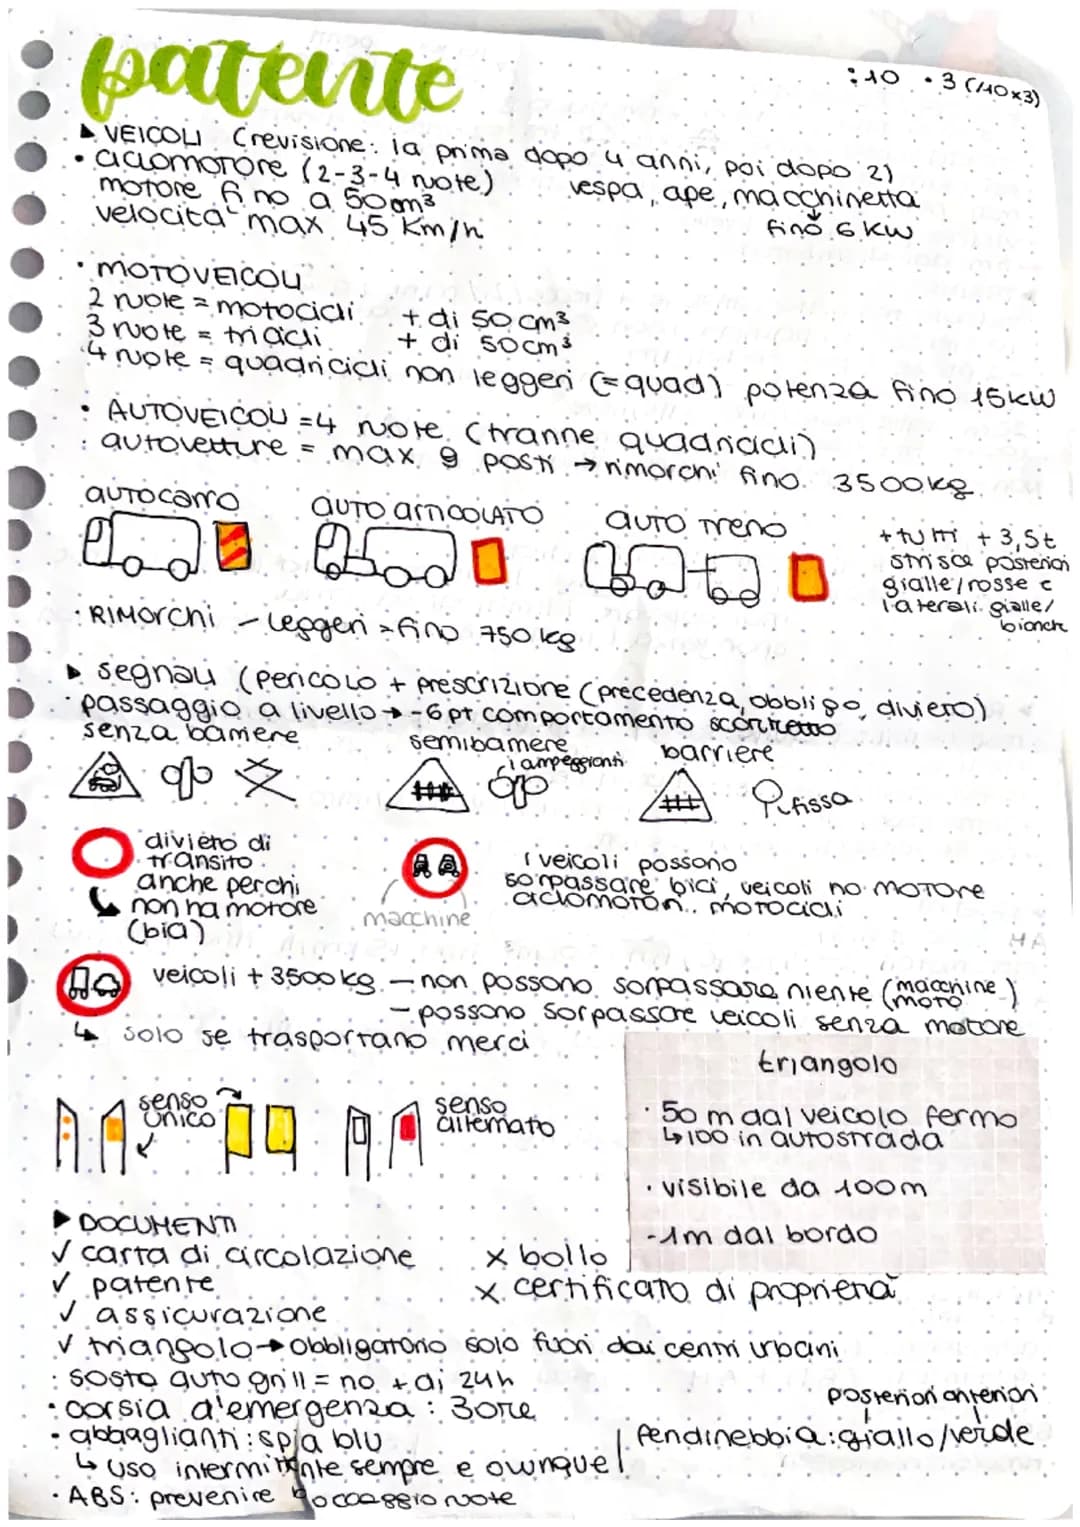 patente
:10 · 3 (/10x3)
▶ VEICOLI (revisione: la prima dopo 4 anni, poi dopo 2)
• ciclomotore (2-3-4 ruote) vespa, ape, macchinetta
motore fino a 50cm³ fino 6 KW
velocità max 45 Km/h
• MOTOVEICOLI
2 ruote = motocicli + di 50 cm³
3 ruote = tricicli + di 50cm³
4 ruote = quadricicli non leggeri (=quad) potenza fino 15kW
• AUTOVEICOLI = 4 ruote (tranne quadricicli)
: autovetture = max 9 posti → rimorchi fino 3500kg
autocarro auto articolato auto treno
+ tutti + 3,5t
strisce posteriori
gialle/rosse e
laterali gialle/
bianche
· RIMORCHI - leggeri = fino 750 kg
▶ segnali (pericolo + prescrizione (precedenza, obbligo, divieto)
· passaggio a livello → -6 pt comportamento scorretto
senza barriere semibarriere barriere
lampeggianti
fissa
divieto di
transito
anche per chi
↳ non ha motore
(bici)
macchine
I veicoli possono
sorpassare bici, veicoli no motore
ciclomotori, motocicli
veicoli + 3500kg - non possono sorpassare niente (macchine moto)
- possono sorpassare veicoli senza motore
↳ solo se trasportano merci
senso
unico
senso
alternato
triangolo
· 50 m dal veicolo fermo
↳ 100 in autostrada
· visibile da 100m
- 1m dal bordo
▶ DOCUMENTI
✓ carta di circolazione x bollo
✓ patente x certificato di proprietà
✓ assicurazione
✓ triangolo → obbligatorio solo fuori dai centri urbani
: sosta auto grill = no + di 24h
• corsia d'emergenza : 3ore
• abbaglianti: spia blu
↳ uso intermittente sempre e ovunque!
posteriori anteriori
Fendinebbia: giallo/verde
· ABS: prevenire bloccaggio ruote